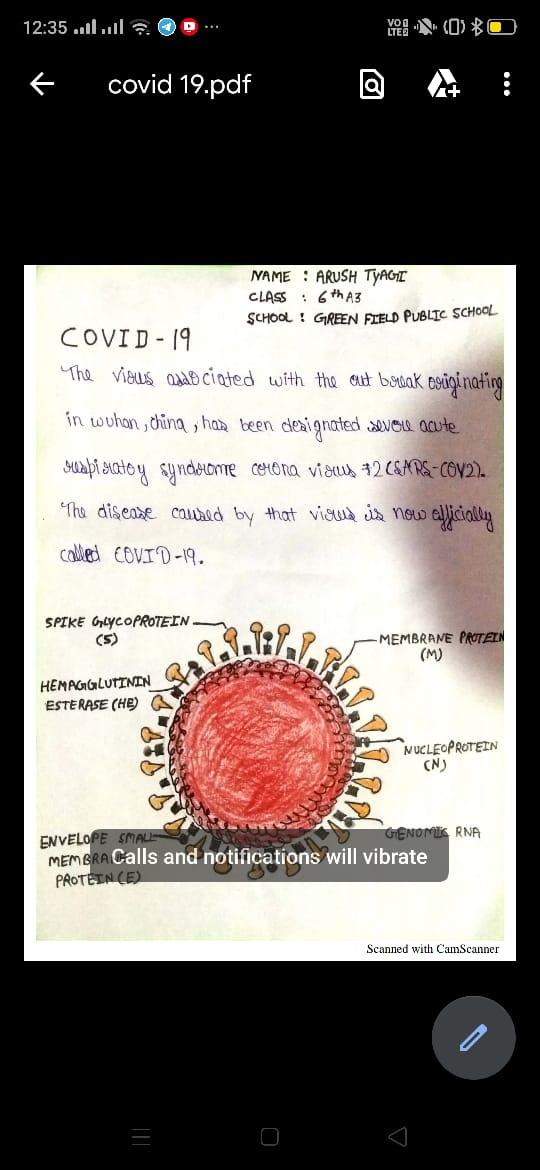 12:35
VO
LTE
covid 19.pdf
NAME : ARUSH TYAGI
CLASS : 6th A3
SCHOOL : GREEN FIELD PUBLIC SCHOOL
COVID-19
The virus associated with the out break originating
in wuhan, china, has been designated severe acute
syndrome corona virus 2 (SARS-COV2).
The disease caused by that virus is now officially
called COVID-19.
SPIKE GLYCOPROTEIN
(S)
MEMBRANE PROTEIN
(M)
HEMAGGLUTININ
ESTERASE (HE)
NUCLEOPROTEIN
(N)
ENVELOPE SMALL
MEMBRANE
PROTEIN (E)
GENOMIC RNA
Calls and notifications will vibrate
Scanned with CamScanner